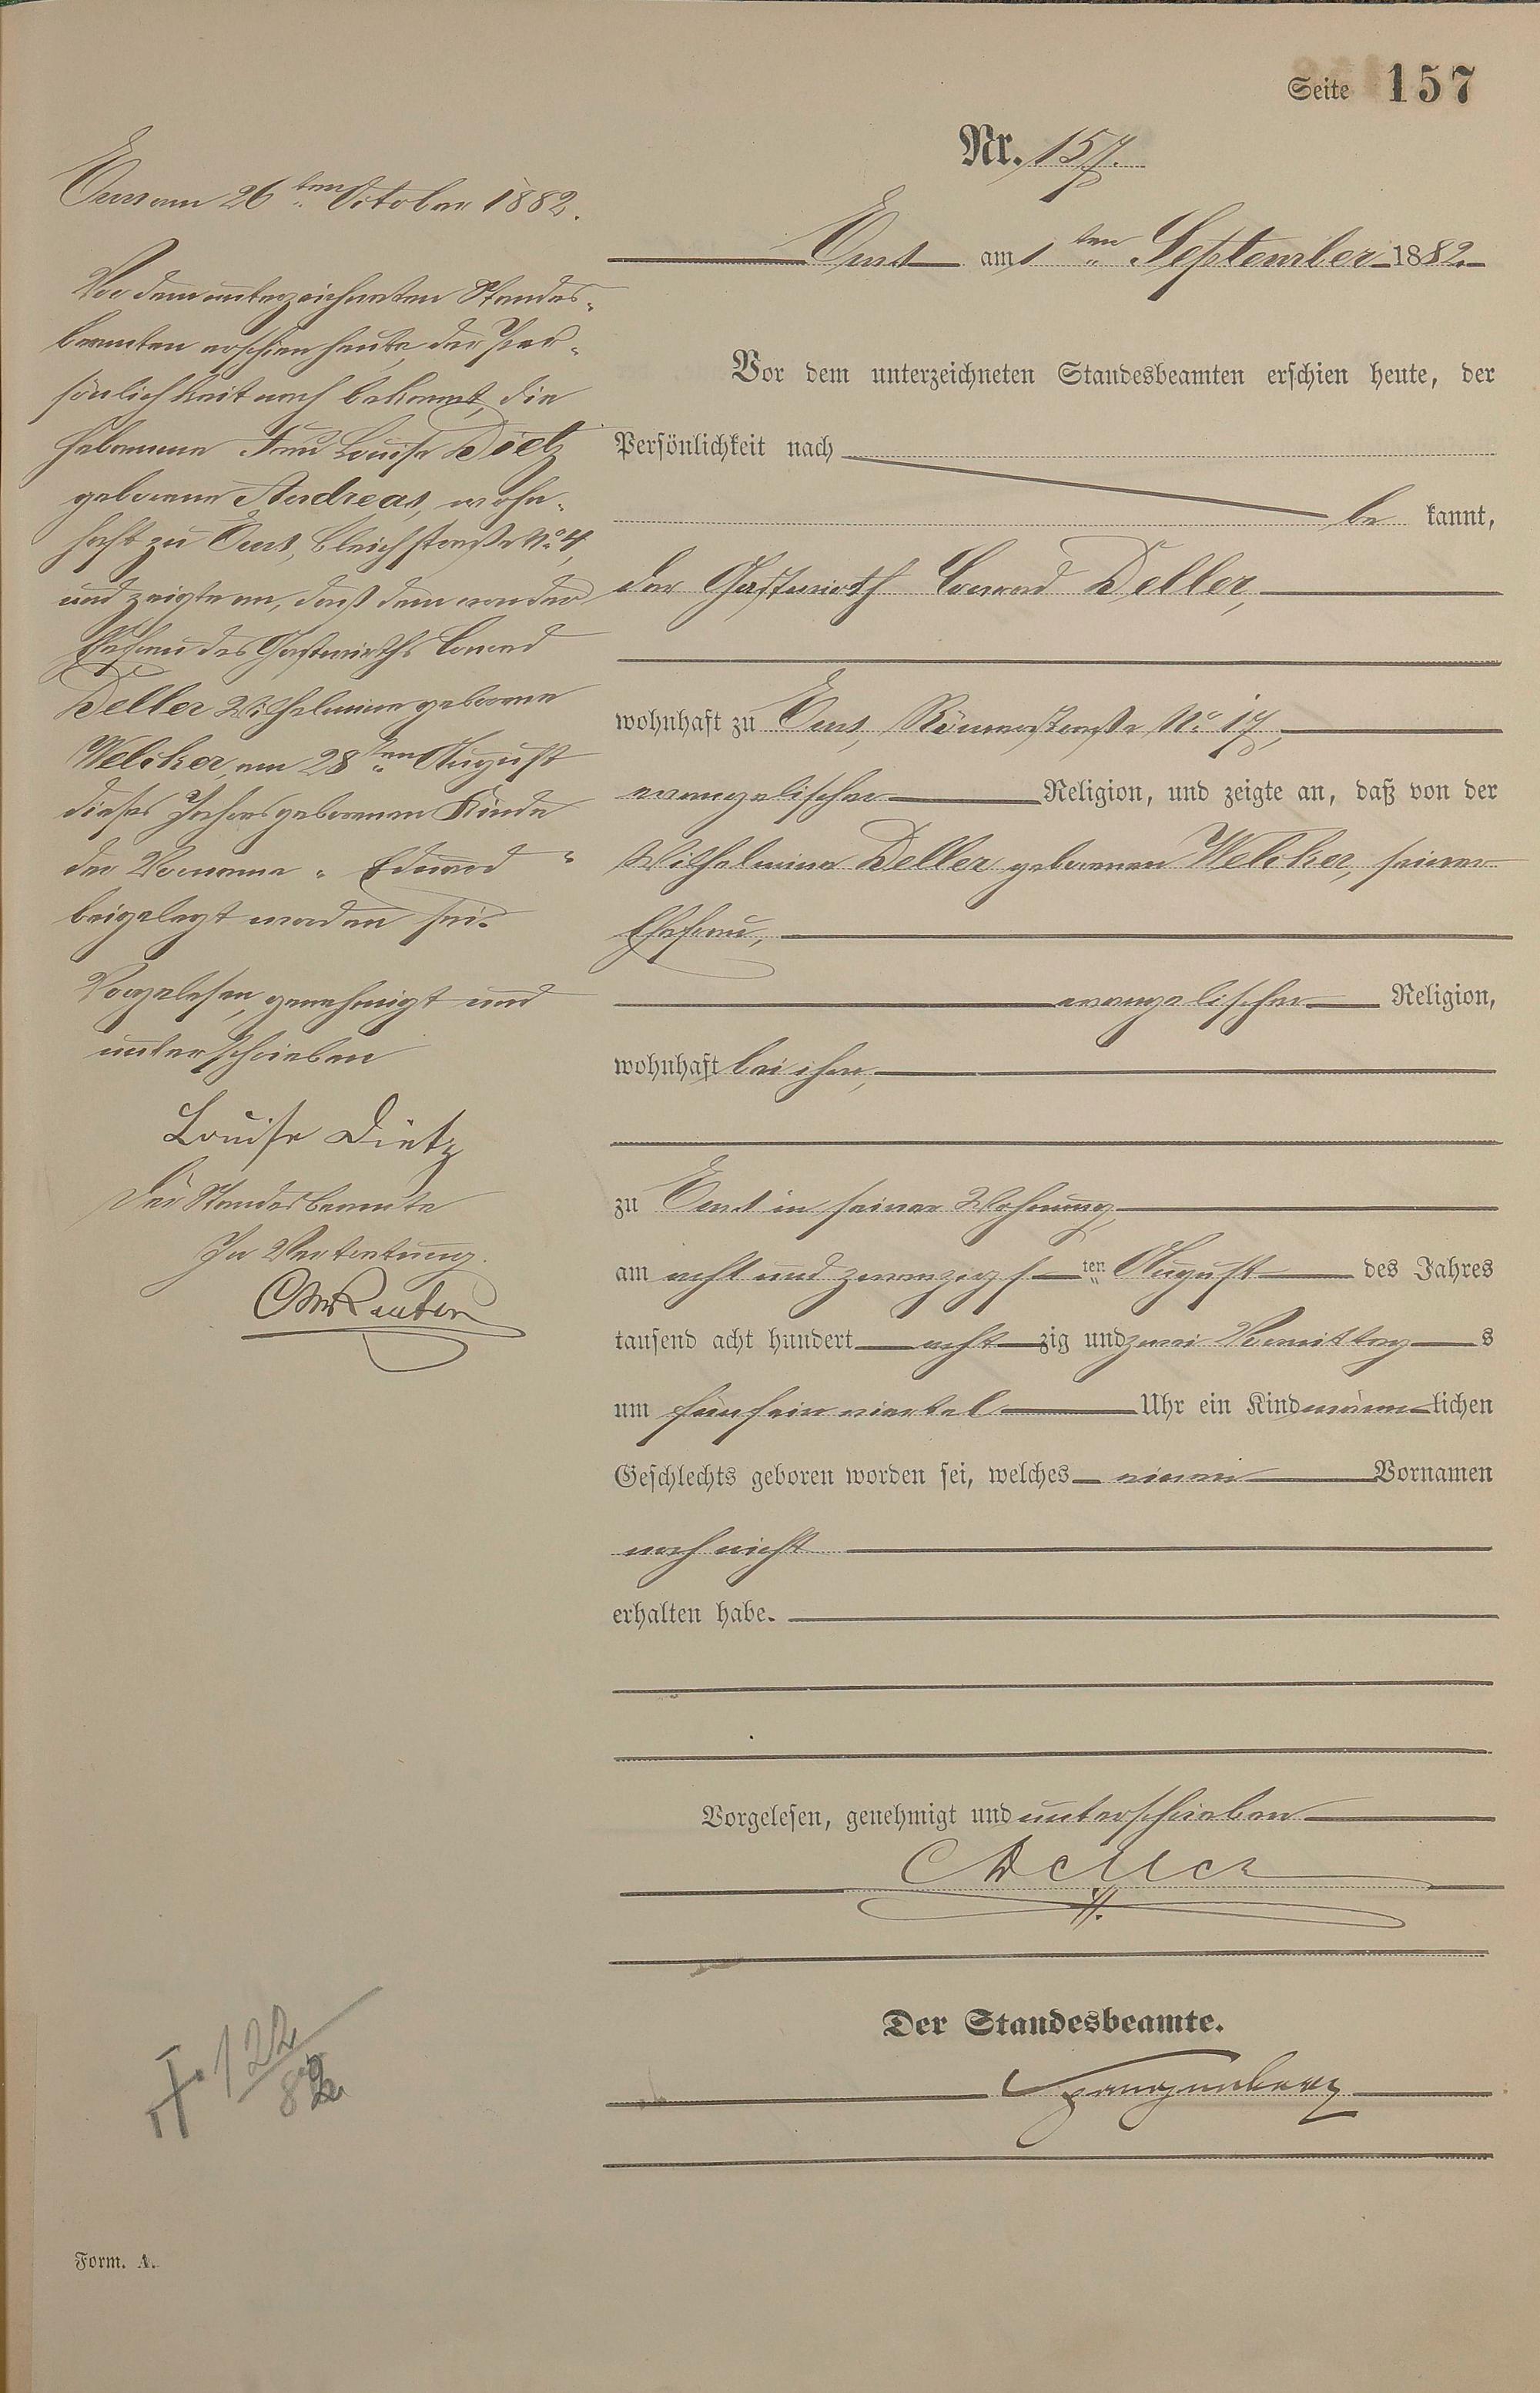 Seite 157
Nr. 157.
Ems am 1ten September 1882.
Vor dem unterzeichneten Standesbeamten erschien heute, der
Persönlichkeit nach
bekannt,
der Gastwirth Conrad Deller,
wohnhaft zu Ems, Römerstraße No. 17,
evangelischer Religion, und zeigte an, daß von der
Wilhelmine Deller geborenen Welcker, seiner
Ehefrau,
evangelischer Religion,
wohnhaft bei ihm,
zu Ems in seiner Wohnung,
am acht und zwanzigsten August des Jahres
tausend acht hundert achtzig und zwei Vormittags
um fünfeinviertel Uhr ein Kind männlichen
Geschlechts geboren worden sei, welches einen Vornamen
noch nicht
erhalten habe.
Vorgelesen, genehmigt und unterschrieben
C Deller
Der Standesbeamte.
Spangenberg
Ems am 26ten October 1882.
Vor dem unterzeichneten Standes-
beamten erschien heute, der Per-
sönlichkeit nach bekannt, die
Hebamme Frau Louise Dietz
geborene Andreas, wohn-
haft zu Ems, Bleichstraße No. 4,
und zeigte an, daß dem von der
Ehefrau des Gastwirths Conrad
Deller Wilhelmine geborene
Welcker, am 28ten August
dieses Jahres geborenen Kinde
der Vorname "Eduard"
beigelegt worden sei.
Vorgelesen, genehmigt und
unterschrieben
Louise Dietz
Der Standesbeamte
In Vertretung.
122
82
Form. A.